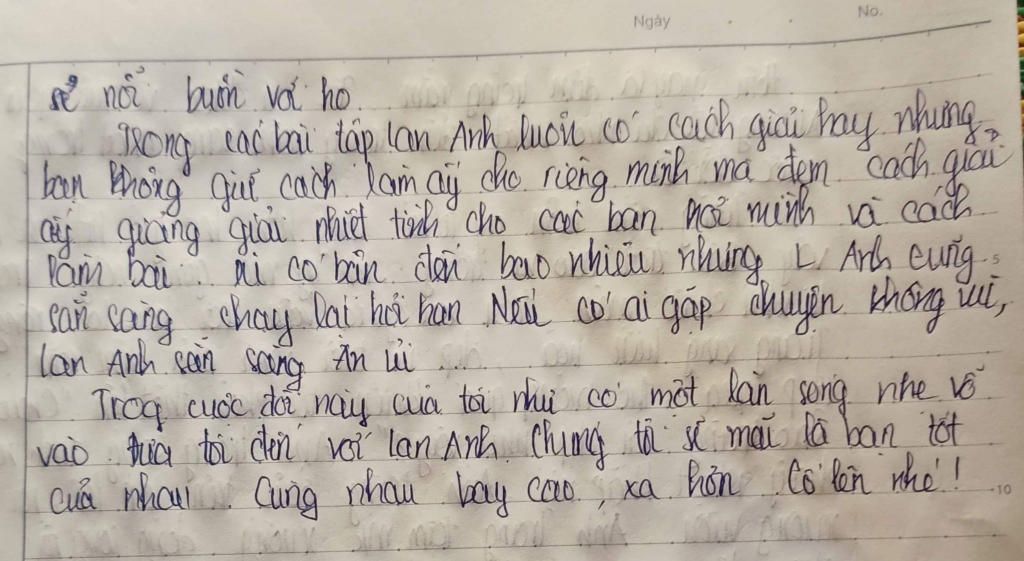 Ngày No.
sẻ nỗi buồn với họ.
Trong các bài tập Lan Anh luôn có cách giải hay nhưng
bạn không giữ cách làm ấy cho riêng mình mà đem cách giải
ấy giảng giải nhiệt tình cho các bạn nơi mình và cách
làm bài. Dù có bận đến bao nhiêu nhưng L. Anh cũng
sẵn sàng chạy lại hỏi han. Nếu có ai gặp chuyện không vui,
Lan Anh sẵn sàng an ủi....
Trog cuộc đời này của tôi như có một làn sóng nhẹ vỗ
vào đưa tôi đến với Lan Anh. Chúng tôi sẽ mãi là bạn tốt
của nhau. Cùng nhau bay cao, xa hơn. Cố lên nhé!
5
10